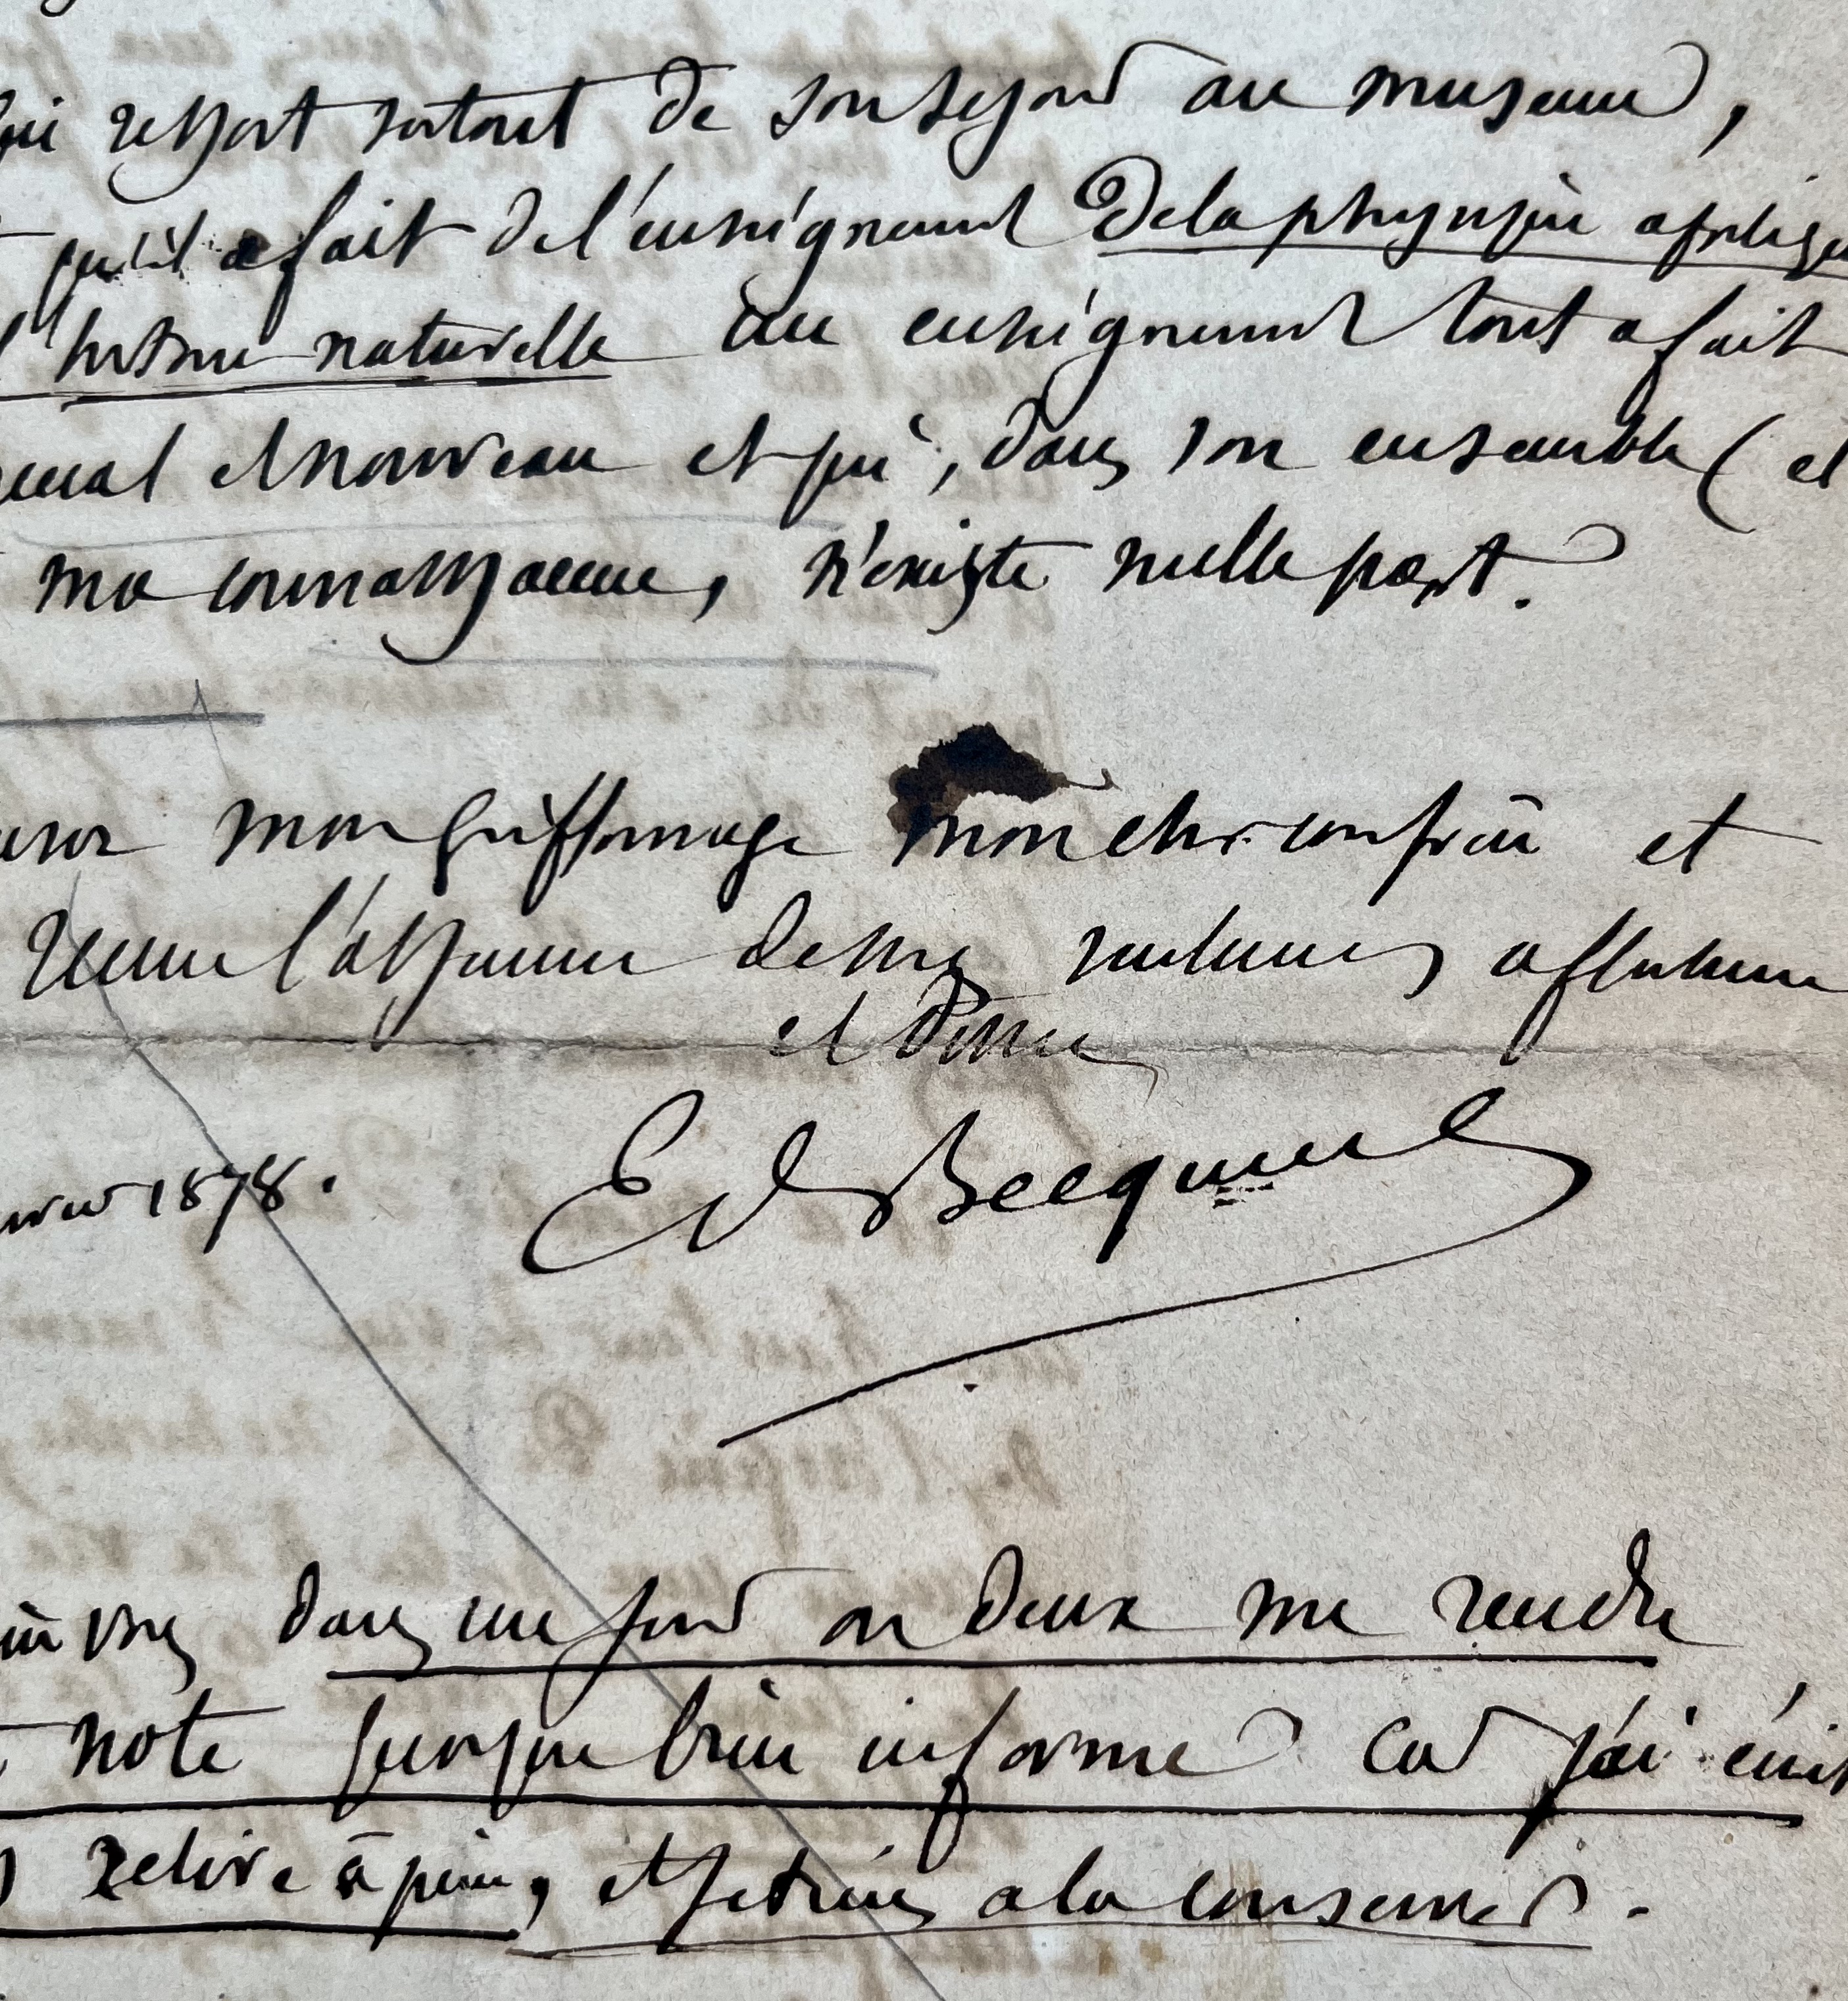 qui ressort surtout de son sejour au museum,
qu'il a fait de l'enseignement de la physique appliqu
l'histoire naturelle un enseignement tout a fait
et nouveau et qui, dans son ensemble (et
ma connaissance, n'existe nulle part.
mon griffonnage mon cher confrère et
l'assurance de mes sentimens affectueux
et devoué
1878. Ed Becquerel
dans un jour ou deux me rendre
note quoique bien informe car j'ai écrit
relire à peine, et je tiens a la conserver.